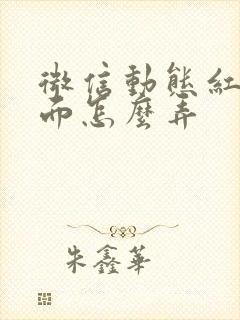 微信動態紅
而怎麼弄
朱鑫華